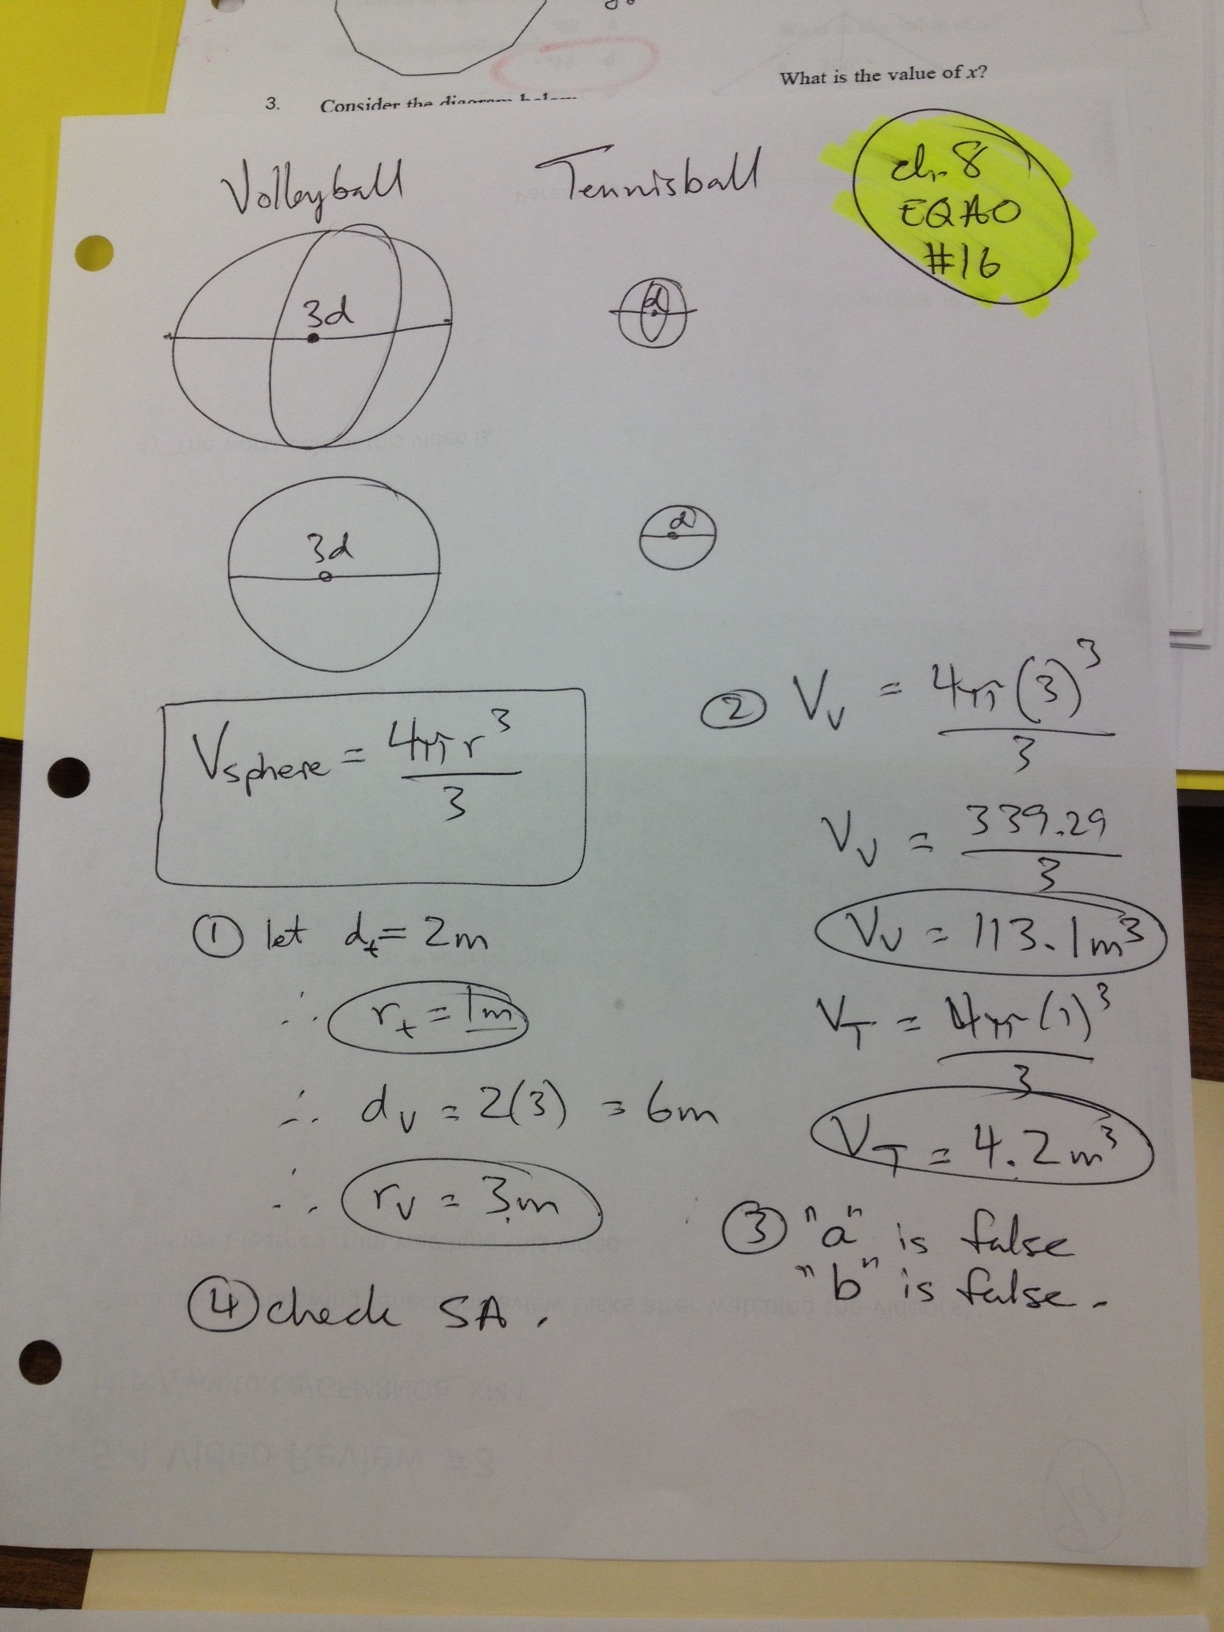 What is the value of x?
3. Consider the diagram below
Volleyball
Tennisball
ch. 8
EQAO
#16
3d
d
3d
d
Vsphere = 4πr³
3
① let dt = 2m
∴ rt = 1m
∴ dv = 2(3) = 6m
∴ rv = 3m
④ check SA.
② Vv = 4π(3)³
3
Vv = 339.29
3
Vv = 113.1m³
VT = 4π(1)³
3
VT = 4.2m³
③ "a" is false
"b" is false.